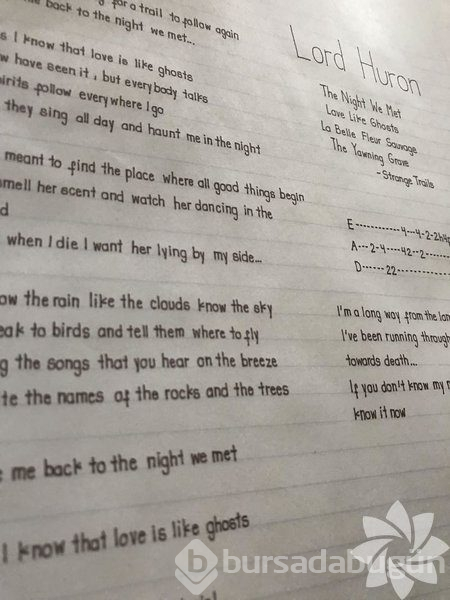 for a trail to follow again
me back to the night we met...
s I know that love is like ghosts
w have seen it, but everybody talks
irits follow everywhere I go
they sing all day and haunt me in the night
meant to find the place where all good things begin
mell her scent and watch her dancing in the
d
when I die I want her lying by my side...
ow the rain like the clouds know the sky
eak to birds and tell them where to fly
g the songs that you hear on the breeze
te the names of the rocks and the trees
e me back to the night we met
I know that love is like ghosts
Lord Huron
The Night We Met
Love Like Ghosts
La Belle Fleur Sauvage
The Yawning Grave
~Strange Trails
E------------4---4-2-2h4p
A---2-4----42--2------
D------22-------------
I'm a long way from the lan
I've been running through
towards death...
If you don't know my n
know it now
bursadabugün